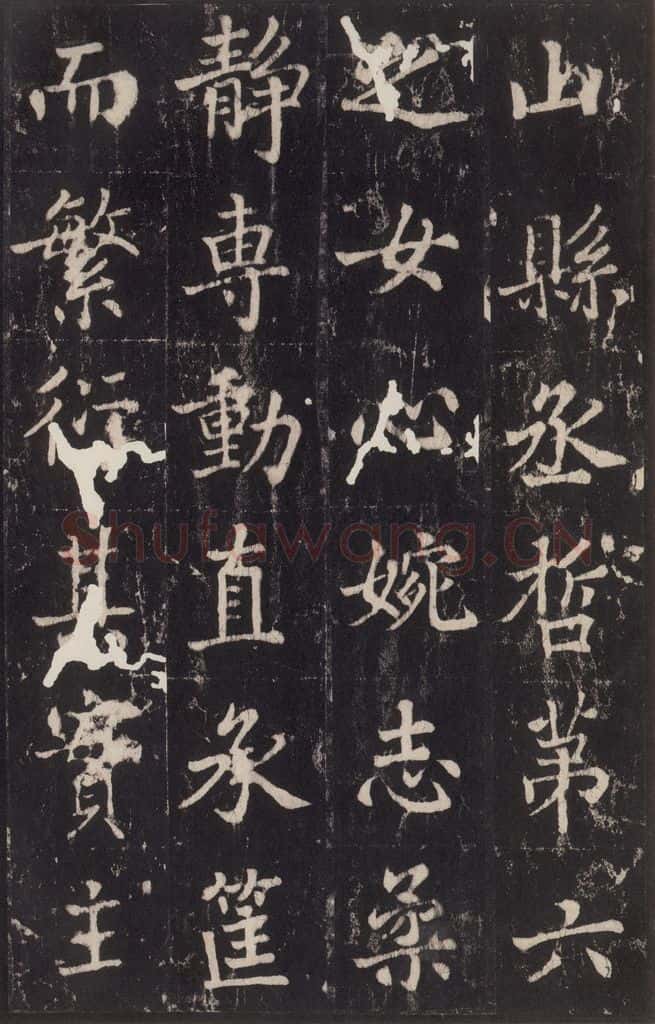 山縣丞哲第六
之女心婉志柔
靜專動直承筐
而繁衍其實主
Shufawang.CN